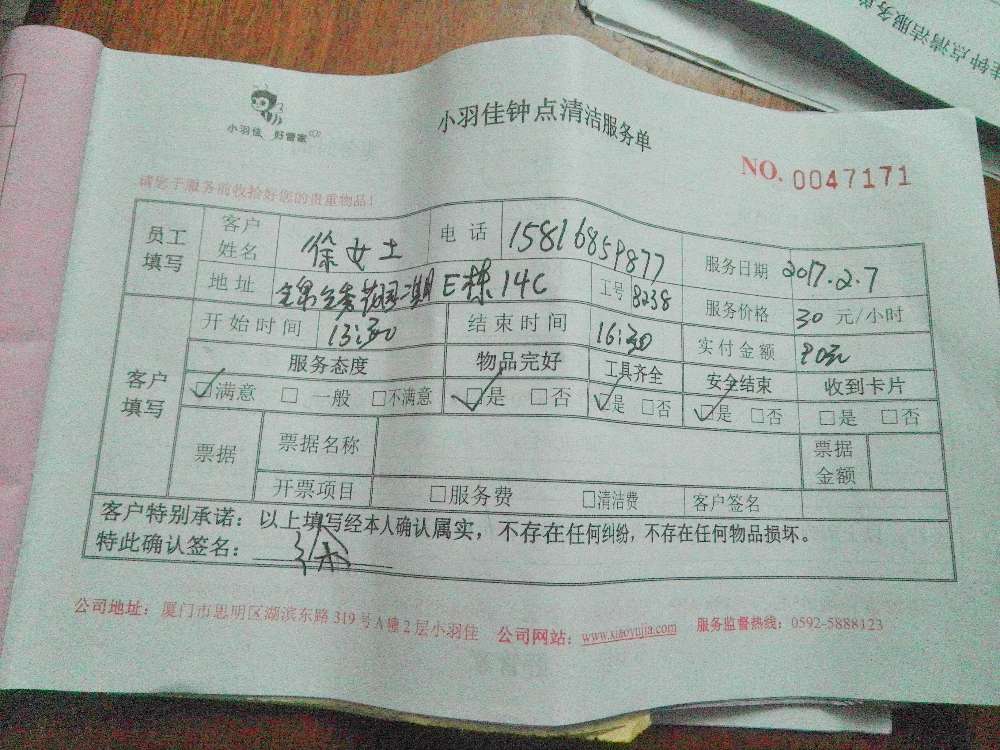 钟点清洁服务单
小羽佳 好管家
小羽佳钟点清洁服务单
NO. 0047171
请您于服务前收拾好您的贵重物品！
员工填写 客户姓名 徐女士 电话 15816859877 服务日期 2017.2.7
地址 花园二期E栋14C 工号 8238 服务价格 30 元/小时
客户填写 开始时间 13:30 结束时间 16:30 实付金额 90元
服务态度 物品完好 工具齐全 安全结束 收到卡片
☑满意 □一般 □不满意 ☑是 □否 ☑是 □否 ☑是 □否 □是 □否
票据 票据名称 票据金额
开票项目 □服务费 □清洁费 客户签名
客户特别承诺：以上填写经本人确认属实，不存在任何纠纷，不存在任何物品损坏。
特此确认签名：徐
公司地址：厦门市思明区湖滨东路319号A幢2层小羽佳 公司网站：www.xiaoyujia.com 服务监督热线：0592-5888123